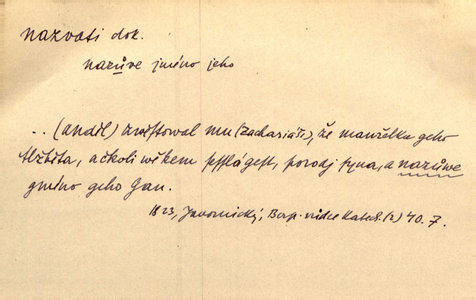 nazvati dok.
nazůve jméno jeho
.. (anděl) zwěstowal mu (Zachariáši), že manželka geho
Alžběta, ačkoli wěkem gest, porodj syna, a nazůwe
gméno geho Gan.
1823, Javornický, Katech. (2) 40. 7.